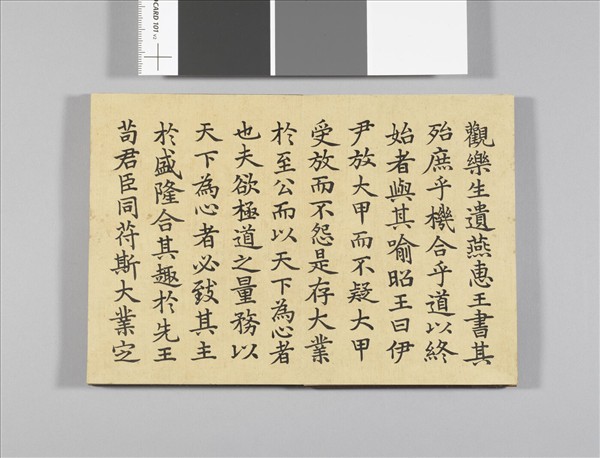 OCARD 101 v2
觀樂生遺燕惠王書其
殆庶乎機合乎道以終
始者與其喻昭王曰伊
尹放大甲而不疑大甲
受放而不怨是存大業
於至公而以天下為心者
也夫欲極道之量務以
天下為心者必致其主
於盛隆合其趣於先王
苟君臣同苻斯大業定